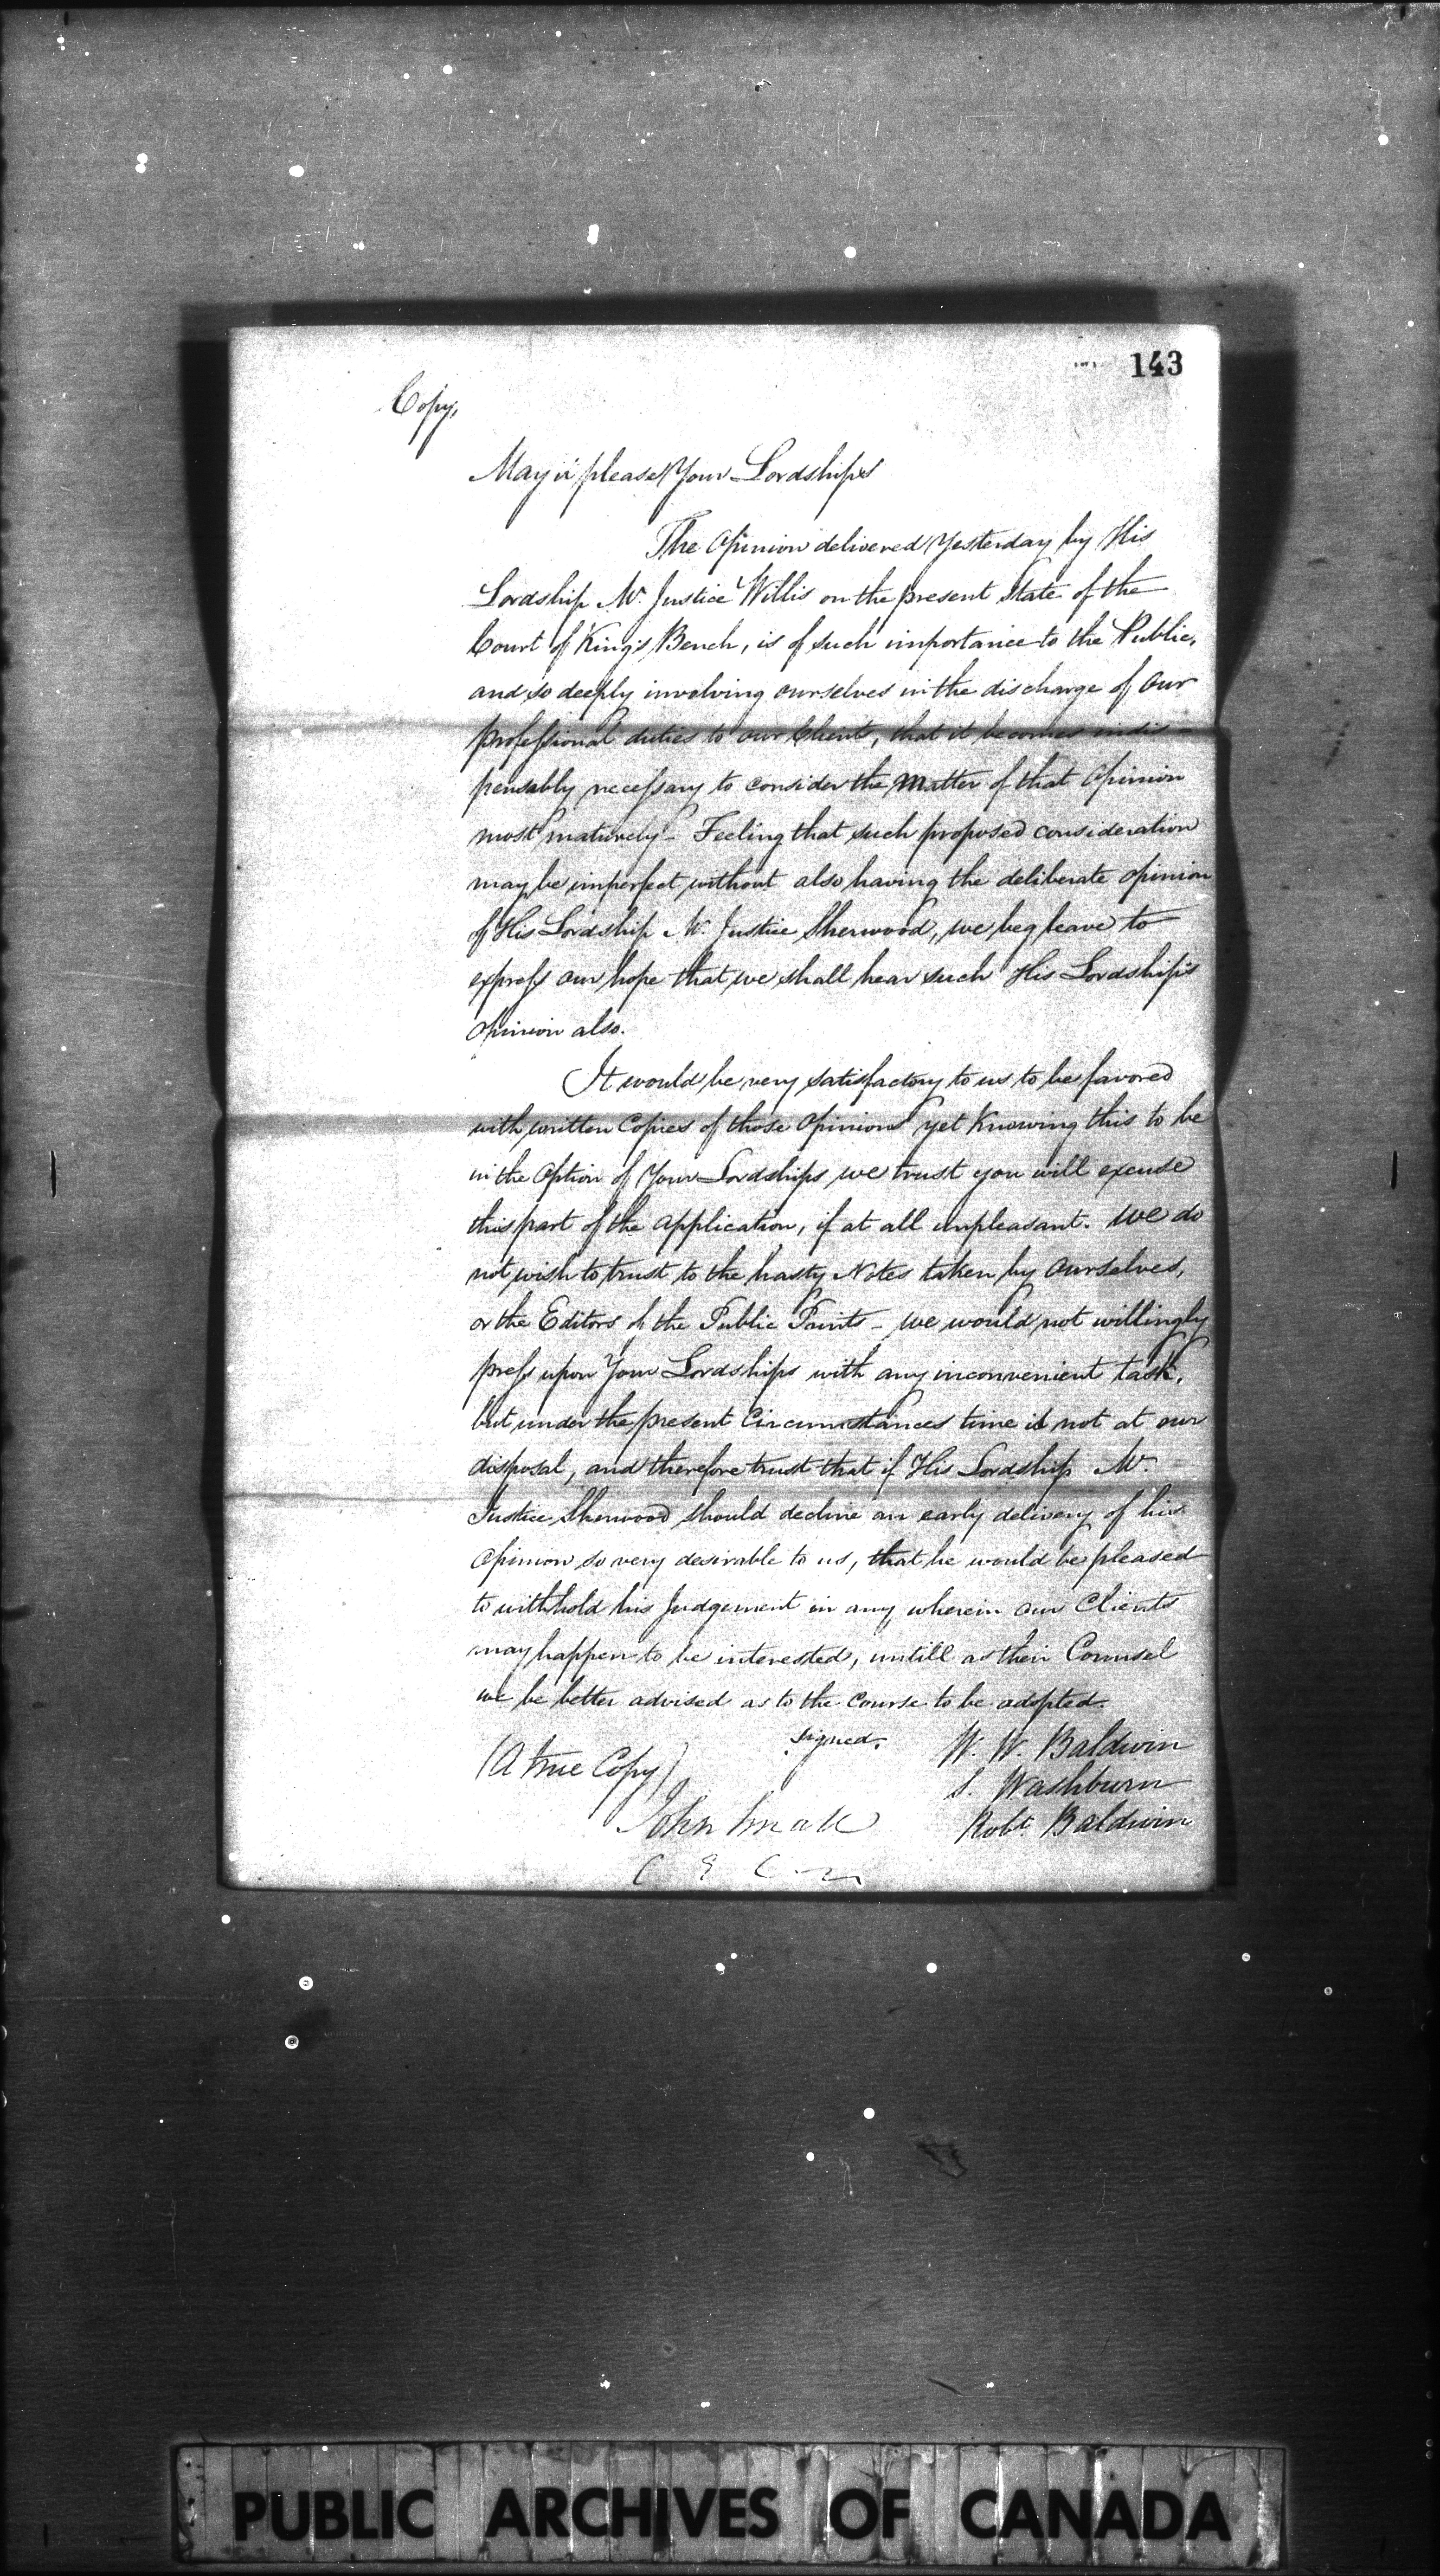 143
Copy,
May it please Your Lordships
The Opinion delivered Yesterday by His
Lordship Mr. Justice Willis on the present State of the
Court of King's Bench, is of such importance to the Public,
and so deeply involving ourselves in the discharge of our
professional duties to our Clients, that it becomes indis
pensably necessary to consider the Matter of that Opinion
most maturely - Feeling that such proposed consideration
may be imperfect without also having the deliberate opinion
of His Lordship Mr. Justice Sherwood, we beg leave to
express our hope that we shall hear such His Lordship's
Opinion also.
It would be very satisfactory to us to be favored
with written Copies of those Opinions yet Knowing this to be
in the Option of Your Lordships we trust you will excuse
this part of the application, if at all unpleasant. We do
not wish to trust to the hasty Notes taken by Ourselves,
or the Editors of the Public Prints - we would not willingly
press upon Your Lordships with any inconvenient task,
but under the present Circumstances time is not at our
disposal, and therefore trust that if His Lordship Mr.
Justice Sherwood should decline an early delivery of his
Opinion so very desirable to us, that he would be pleased
to withhold his Judgement in any wherein our Clients
may happen to be interested, untill as their Counsel
we be better advised as to the Course to be adopted.
signed. W. W. Baldwin
(A true Copy) S. Washburn
John Robt. Baldwin
PUBLIC ARCHIVES OF CANADA